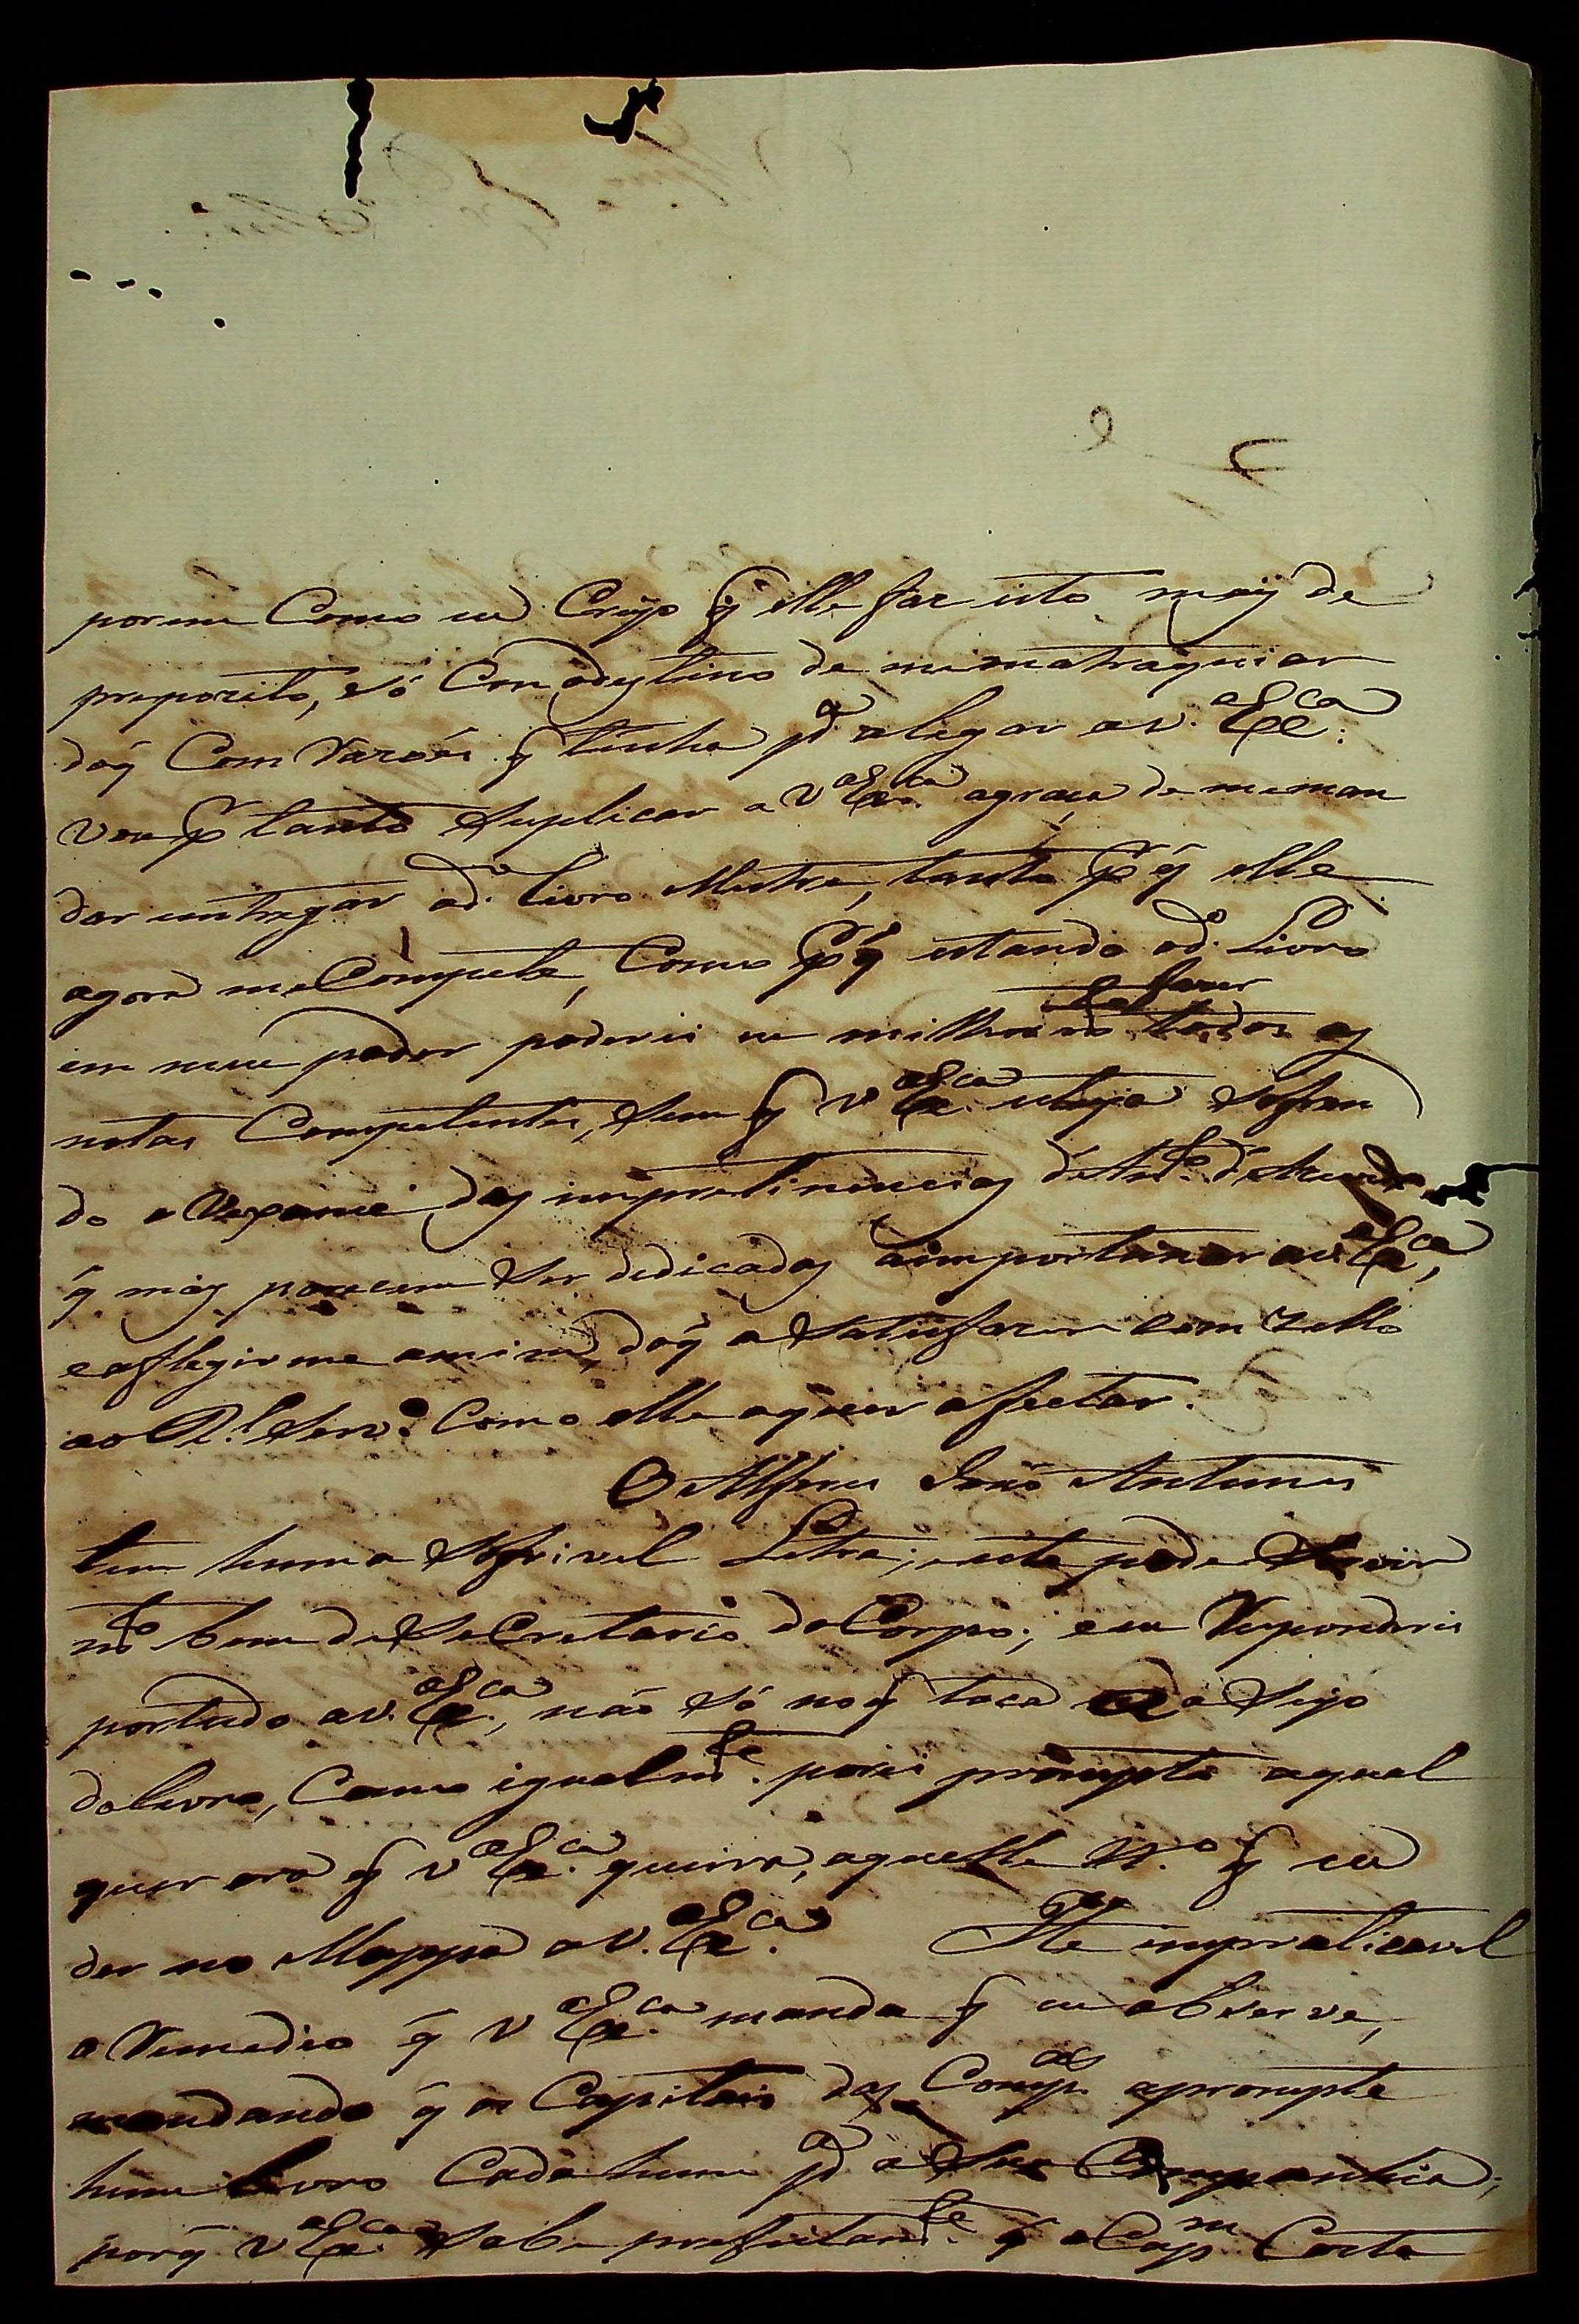 porem Como eu Creyo q̃ elle faz isto mais de
propozito, e só Com odestino de mematraquiar
doq̃ Com Razoẽs q̃ tinha pᵃ alegar a V. Exᶜᵃ:
vou pʳ tanto Suplicar a V Exᶜᵃ agraça de meman
dar entregar o dᵒ Livro Mestre, tanto pʳ q̃ elle
agora me Compete, Como pʳ q̃ estando odᵒ Livro
em meu poder poderei eu milhor fazer todas as
notas Competentes, Sem q̃ V Exᶜᵃ esteja Sofren
do o Vexame das impertinencias de Antᵒ de
q̃ mais parecem Ser dedicadas aimportunar a V. Exᶜᵃ,
e aflegirme amim, doq̃ a Satisfazer com zello
ao Rˡ Servᵒ Como elle aquer afectar.
O Alferes João Antunes
tem huma Sofrivel Letra; este pode Servir
mᵗᵒ bem de Secretario do Corpo; e eu Responderei
portudo a V. Exᶜᵃ, não Só noq̃ toca a
do livro, Como igualmᵗᵉ. porei prompto aqual
quer ora q̃ V Exᶜᵃ. queira, aquelle Nᵒ q̃ eu
der no Mappa a V. Exᶜᵃ. He impraticavel
o Remedio q̃ V Exᶜᵃ. manda q̃ eu observe,
mandando q̃ os Capitais das Compᵃˢ aprompte
hum Livro Cada hum pᵃ a Sua Companhia;
porq̃ V Exᶜᵃ. Sabe prefeitamᵗᵉ. q̃ o Capᵐ Costa